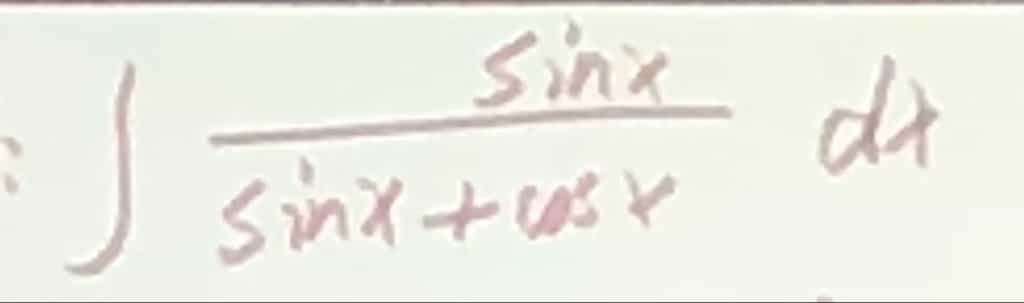 : ∫ sinx / (sinx + cosx) dx